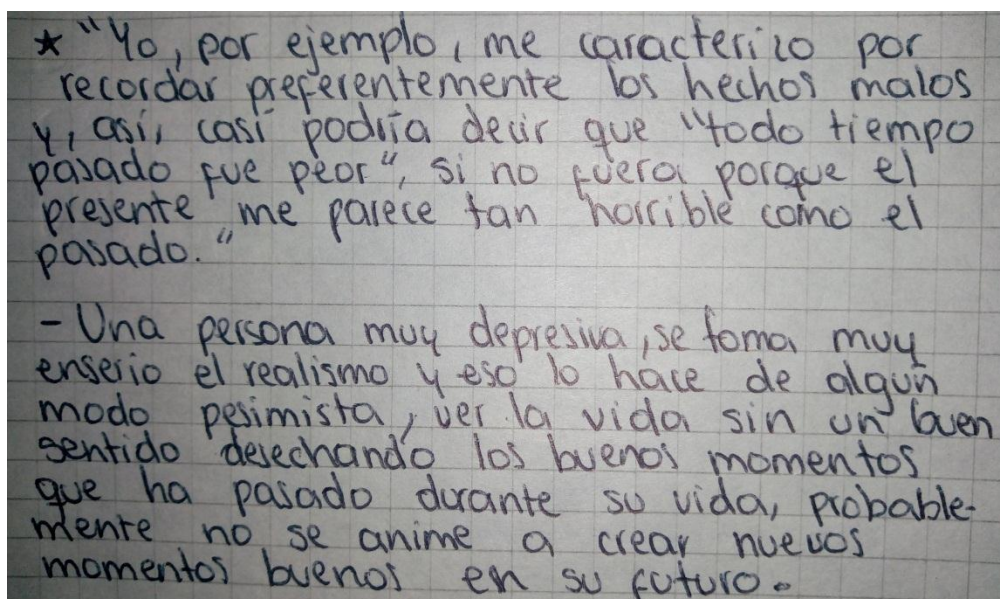 ★ "Yo, por ejemplo, me caracterizo por
recordar preferentemente los hechos malos
y, así, casi podría decir que "todo tiempo
pasado fue peor", si no fuera porque el
presente me parece tan horrible como el
pasado."
- Una persona muy depresiva, se toma muy
enserio el realismo y eso lo hace de algún
modo pesimista, ver la vida sin un buen
sentido desechando los buenos momentos
que ha pasado durante su vida, probable-
mente no se anime a crear nuevos
momentos buenos en su futuro.